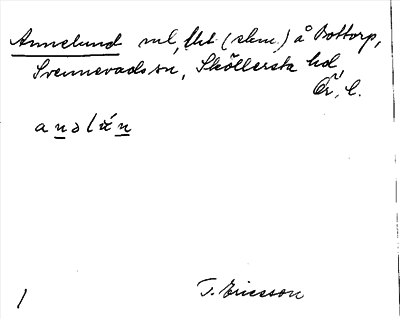 Annelund ml, fht. (skm.) å Bottorp,
Svennevads sn, Sköllersta hd
Ör. l.
a n ə l ú n
T. Ericsson
1